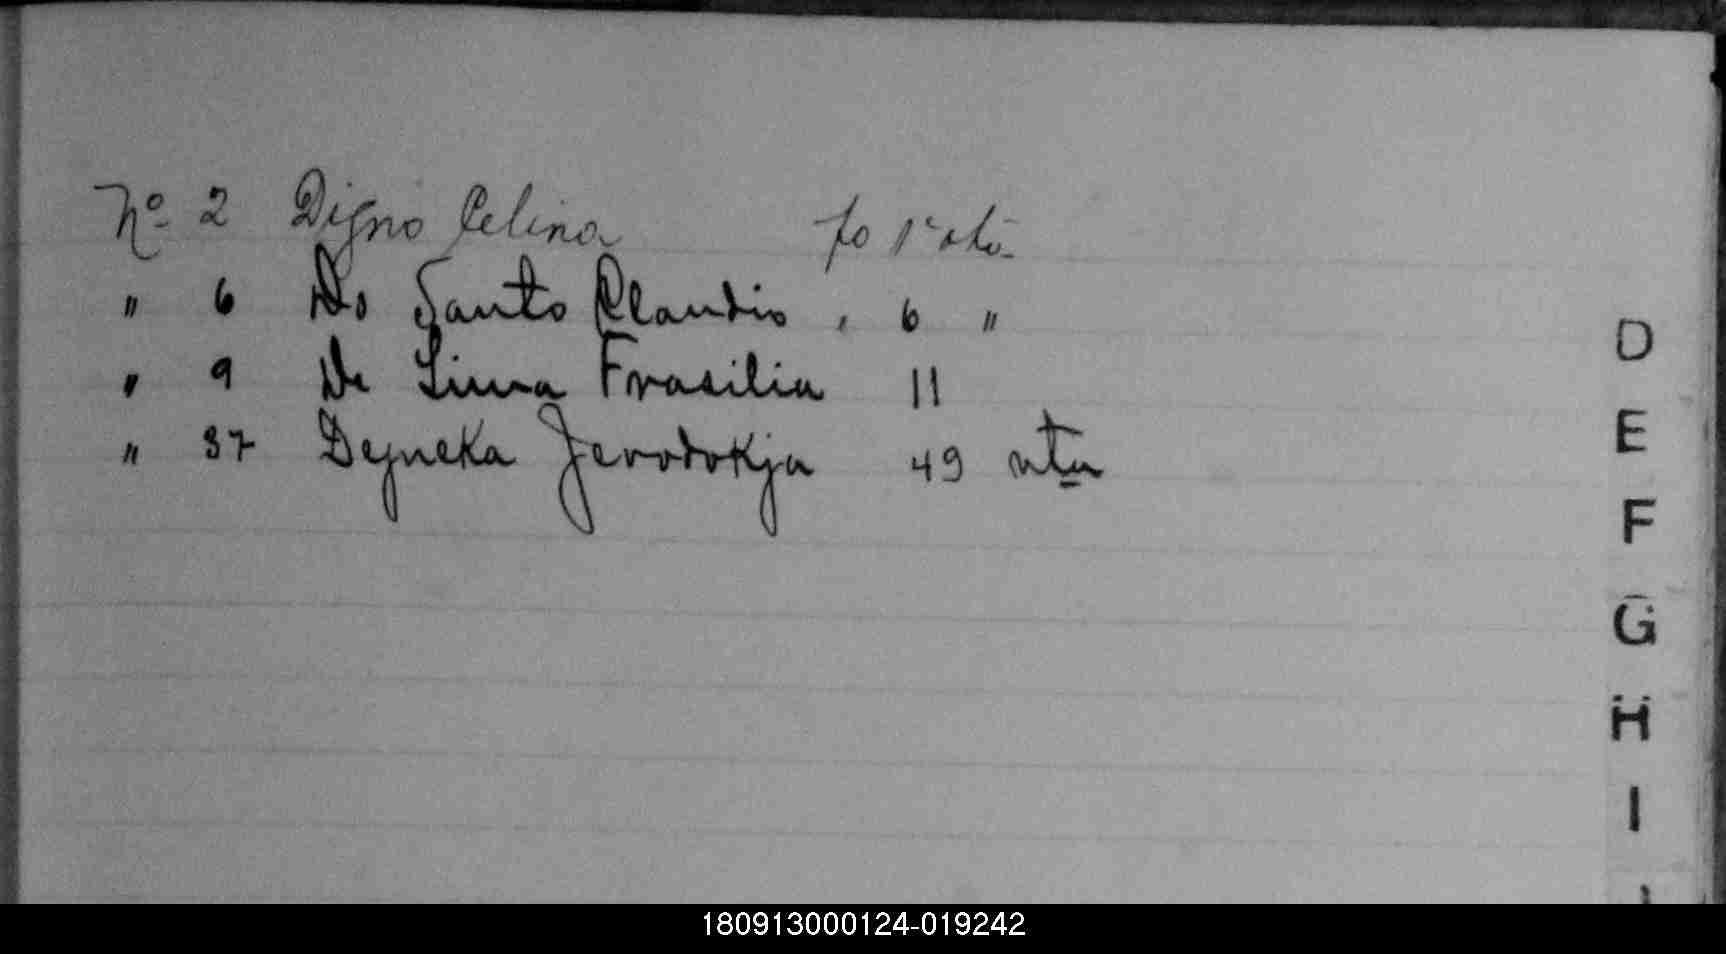 Nº 2 Digno Celina fo 1 vta
" 6 Do Santo Claudio " 6 "
" 9 De Lima Frasilia 11
" 37 Dejneka Jevodokja 49 vta
D
E
F
G
H
I
180913000124-019242